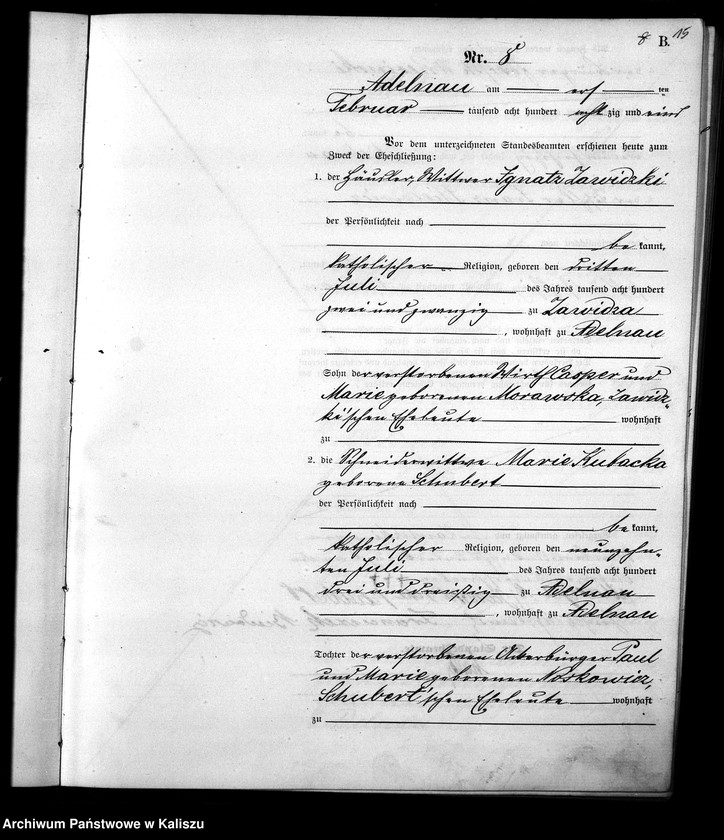 8 B. 15
Nr. 8
Adelnau am ersten
Februar tausend acht hundert achtzig und eins
Vor dem unterzeichneten Standesbeamten erschienen heute zum
Zweck der Eheschließung:
1. der Häusler, Wittwer Ignatz Zawidzki
der Persönlichkeit nach
bekannt,
katholischer Religion, geboren den dritten
Juli des Jahres tausend acht hundert
zwei und zwanzig zu Zawidza
, wohnhaft zu Adelnau
Sohn der verstorbenen Wirth Casper und
Marie geborenen Morawska, Zawidz„
ki'schen Eheleute wohnhaft
zu
2. die Schneiderwittwe Marie Kubacka
geborene Schubert
der Persönlichkeit nach
bekannt,
katholischer Religion, geboren den neunzehn„
ten Juli des Jahres tausend acht hundert
drei und dreißig zu Adelnau
, wohnhaft zu Adelnau
Tochter der verstorbenen Ackerbürger Paul
und Marie geborenen Noskowicz,
Schubert'schen Eheleute wohnhaft
zu
Archiwum Państwowe w Kaliszu